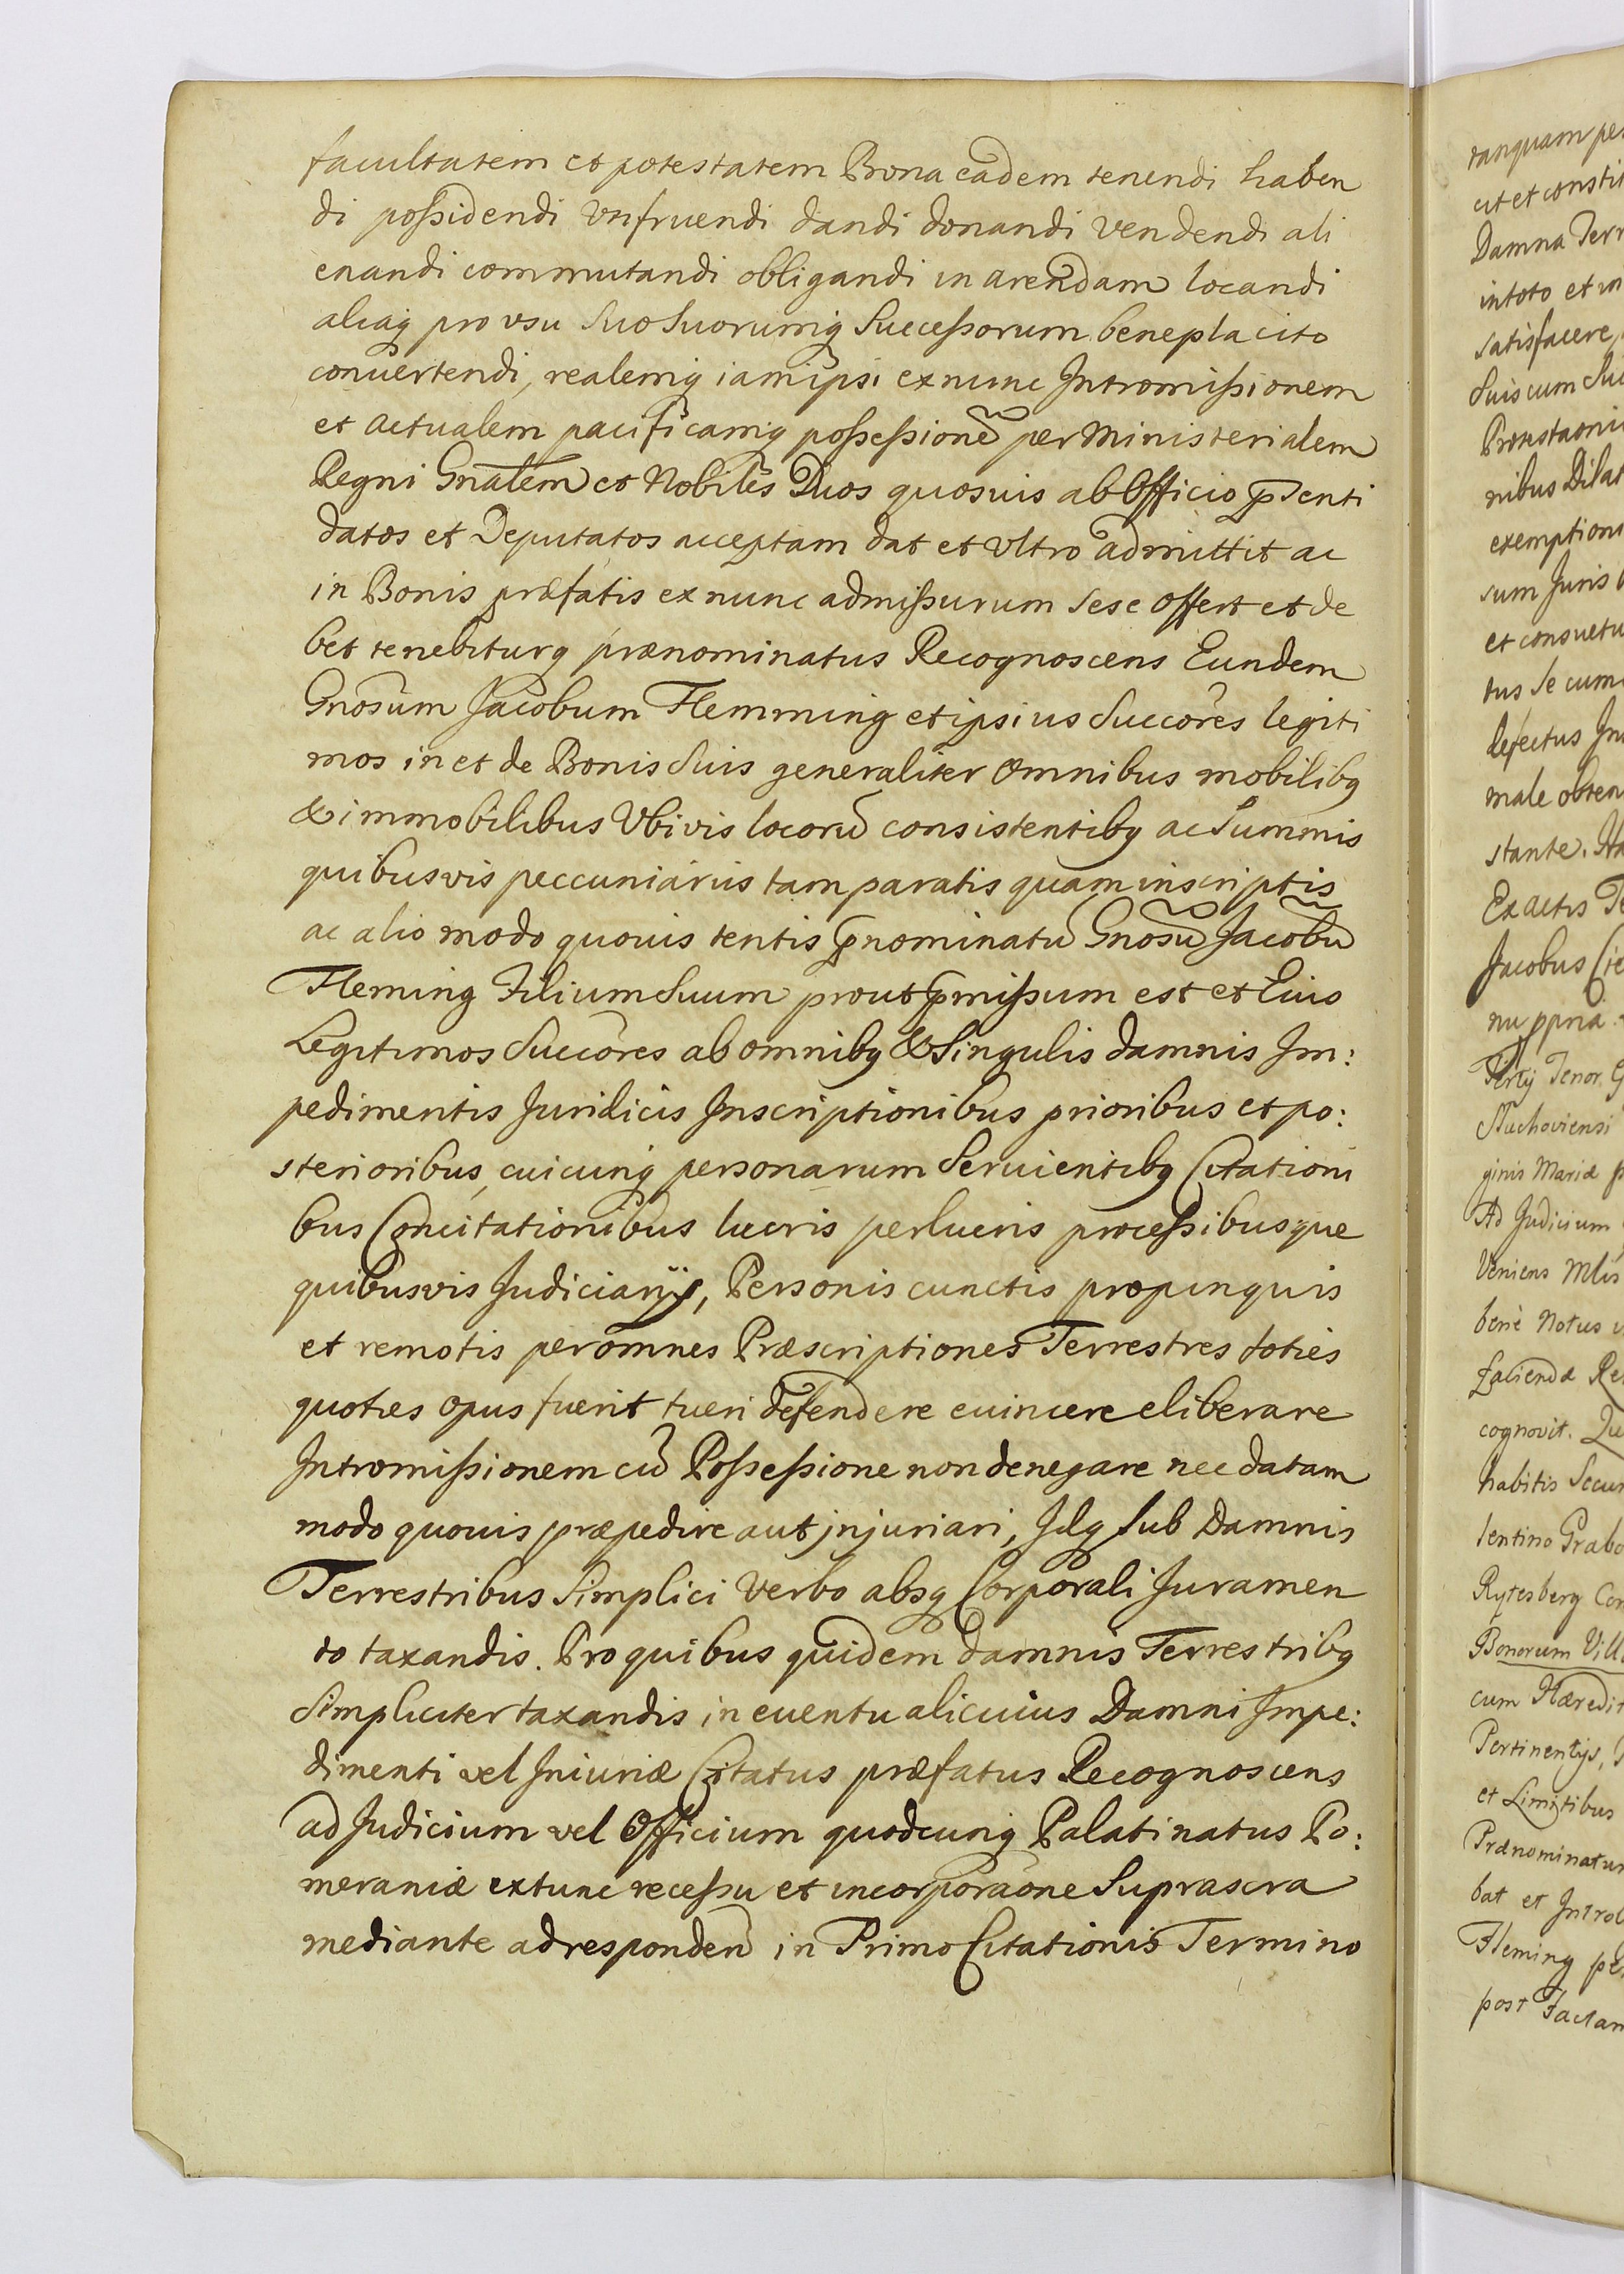 facultatem et potestatem Bona eadem tenendi haben
di poßidendi vtifruendi dandi donandi vendendi ali
enandi commutandi obligandi in arendam locandi
aliaq₃ pro vsu suo suorumq₃ Succeßorum beneplacito
conuertendi, realemq₃ iam ipsi ex nunc Intromißionem
et actualem pacificamq₃ poßeßionē per Ministerialem
Regni Gnãlem et Nobiles Duos quosuis ab Officio p̄senti
datos et Deputatos acceptam dat et vltro admittit ac
in Bonis præfatis ex nunc admißurum sese offert et de
bet tenebiturq₃ prænominatus Recognoscens Eundem
Gnosum Jacobum Flemming et ipsius Succores legiti
mos in et de Bonis suis generaliter omnibus mobilibq₃
& immobilibus Vbivis locorū consistentibq₃ ac Summis
quibusvis peccuniariis tam paratis quam inscriptis
ac alio modo quouis tentis p̄nominatū Gnosū Jacobū
Fleming Filium suum prout p̄mißum est et Eius
Legitimos Succores ab omnibq₃ & Singulis damnis Im:
pedimentis Juridicis Inscriptionibus prioribus et po:
sterioribus, cuicunq₃ personarum Seruientibq₃ Citationi
bus Concitationibus lucris perlucris proceßibusque
quibusvis Judiciarijs, Personis cunctis propinquis
et remotis per omnes Præscriptiones Terrestres toties
quoties opus fuerit tueri defendere euincere eliberare
Intromißionem cū Poßeßione non denegare nec datam
modo quouis præpedire aut injuriari, Idq₃ sub Damnis
Terrestribus Simplici Verbo absq₃ Corporali Juramen
to taxandis. Pro quibus quidem damnis Terrestribq₃
Simpliciter taxandis in euentu alicuius Damni Impe:
dimenti vel Iniuriæ Citatus præfatus Recognoscens
ad Judicium vel Officium quodcunq₃ Palatinatus Po:
meraniæ extunc receßu et incorporãone Suprascra
mediante ad respondeñ in Primo Citationis Termino
tanquam
et consti
Damna Terr
in toto et in
satisfacere
suis cum
nibus Dilat
exemptioni
sum Juris
et consuetu
tus se cum
defectus
male obten
stante.
Ex actis
Jacobus
nu ppria
Tertij Tenor
Tuchoviensi
ginis Mariæ
Ad Judicium
Veniens
bene Notus
faciendæ
cognovit.
habitis
lentino Grabo
Rytesberg
Bonorum Vill
cum Hæredit
Pertinentijs,
et Limitibus
Prænominatum
bat et Introl
Fleming
post Factam